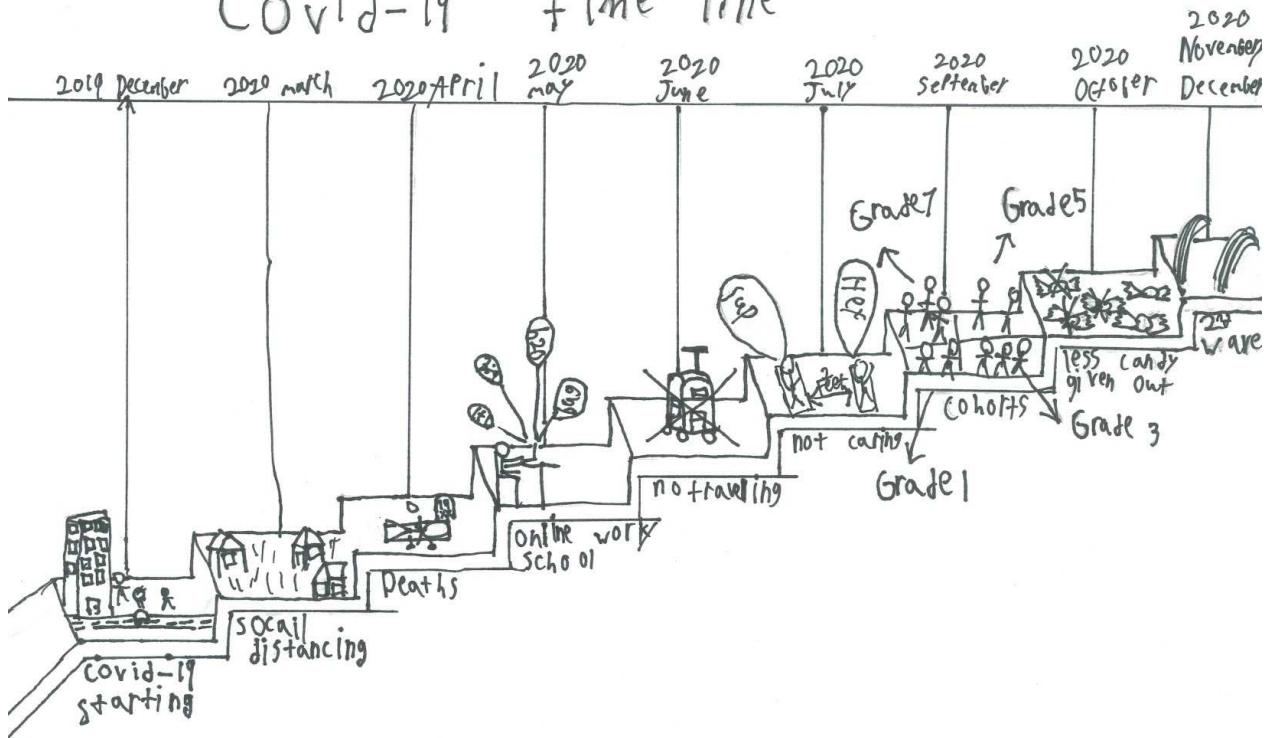 Covid-19 time line
2019 December
2020 march
2020 April
2020
may
2020
June
2020
July
2020
September
2020
October
2020
November
December
Grade7
Grade5
yap
Hey
h20
bag
covid-19
starting
socail
distancing
Deaths
online work
school
no travelling
not caring
Grade1
cohorts
Grade 3
less candy
given out
2n
wave